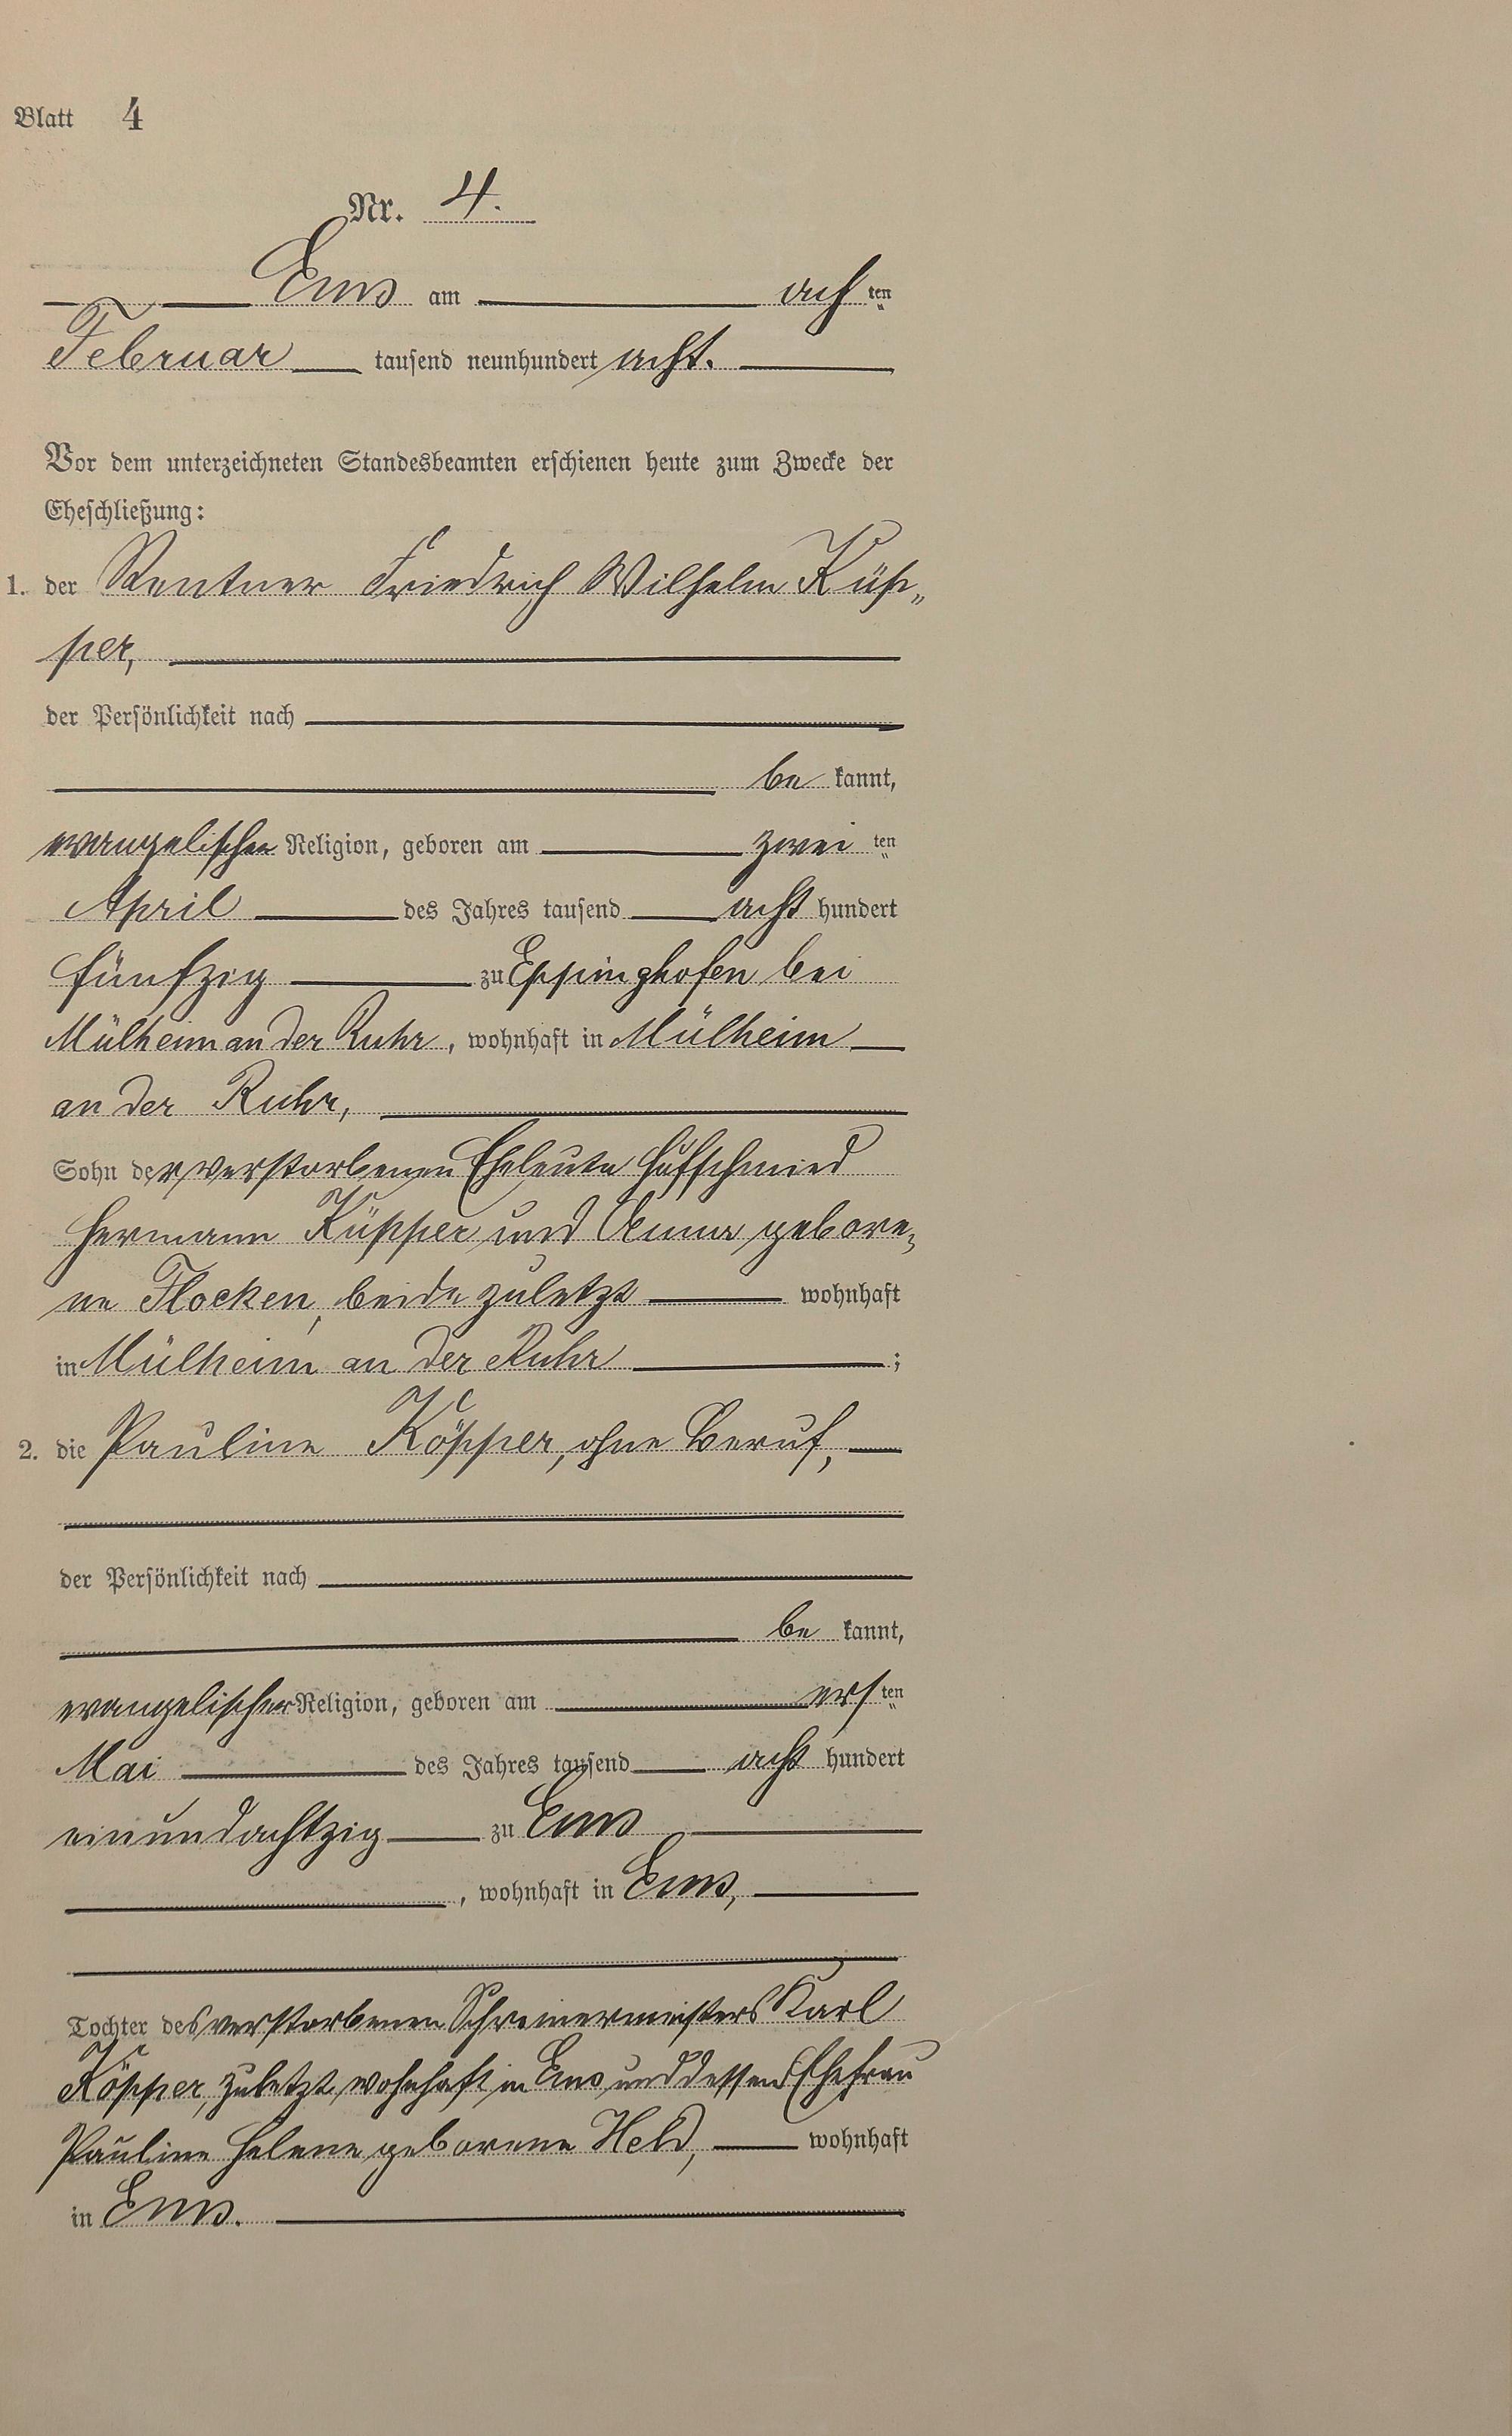 Blatt 4
Nr. 4.
Ems am acht ten
Februar tausend neunhundert acht.
Vor dem unterzeichneten Standesbeamten erschienen heute zum Zwecke der
Eheschließung:
1. der Rentner Friedrich Wilhelm Küp„
per,
der Persönlichkeit nach
be kannt,
evangelischer Religion, geboren am zwei ten
April des Jahres tausend acht hundert
fünfzig zu Eppinghofen bei
Mülheim an der Ruhr, wohnhaft in Mülheim
an der Ruhr,
Sohn der verstorbenen Eheleute Hufschmied
Hermann Küpper und Anna gebore„
ne Flocken, beide zuletzt wohnhaft
in Mülheim an der Ruhr ;
2. die Pauline Köpper, ohne Beruf,
der Persönlichkeit nach
be kannt,
evangelischer Religion, geboren am ers ten
Mai des Jahres tausend acht hundert
einundachtzig zu Ems
, wohnhaft in Ems,
Tochter des verstorbenen Schreinermeisters Karl
Köpper, zuletzt wohnhaft in Ems und dessen Ehefrau
Pauline Helene geborene Held, wohnhaft
in Ems.